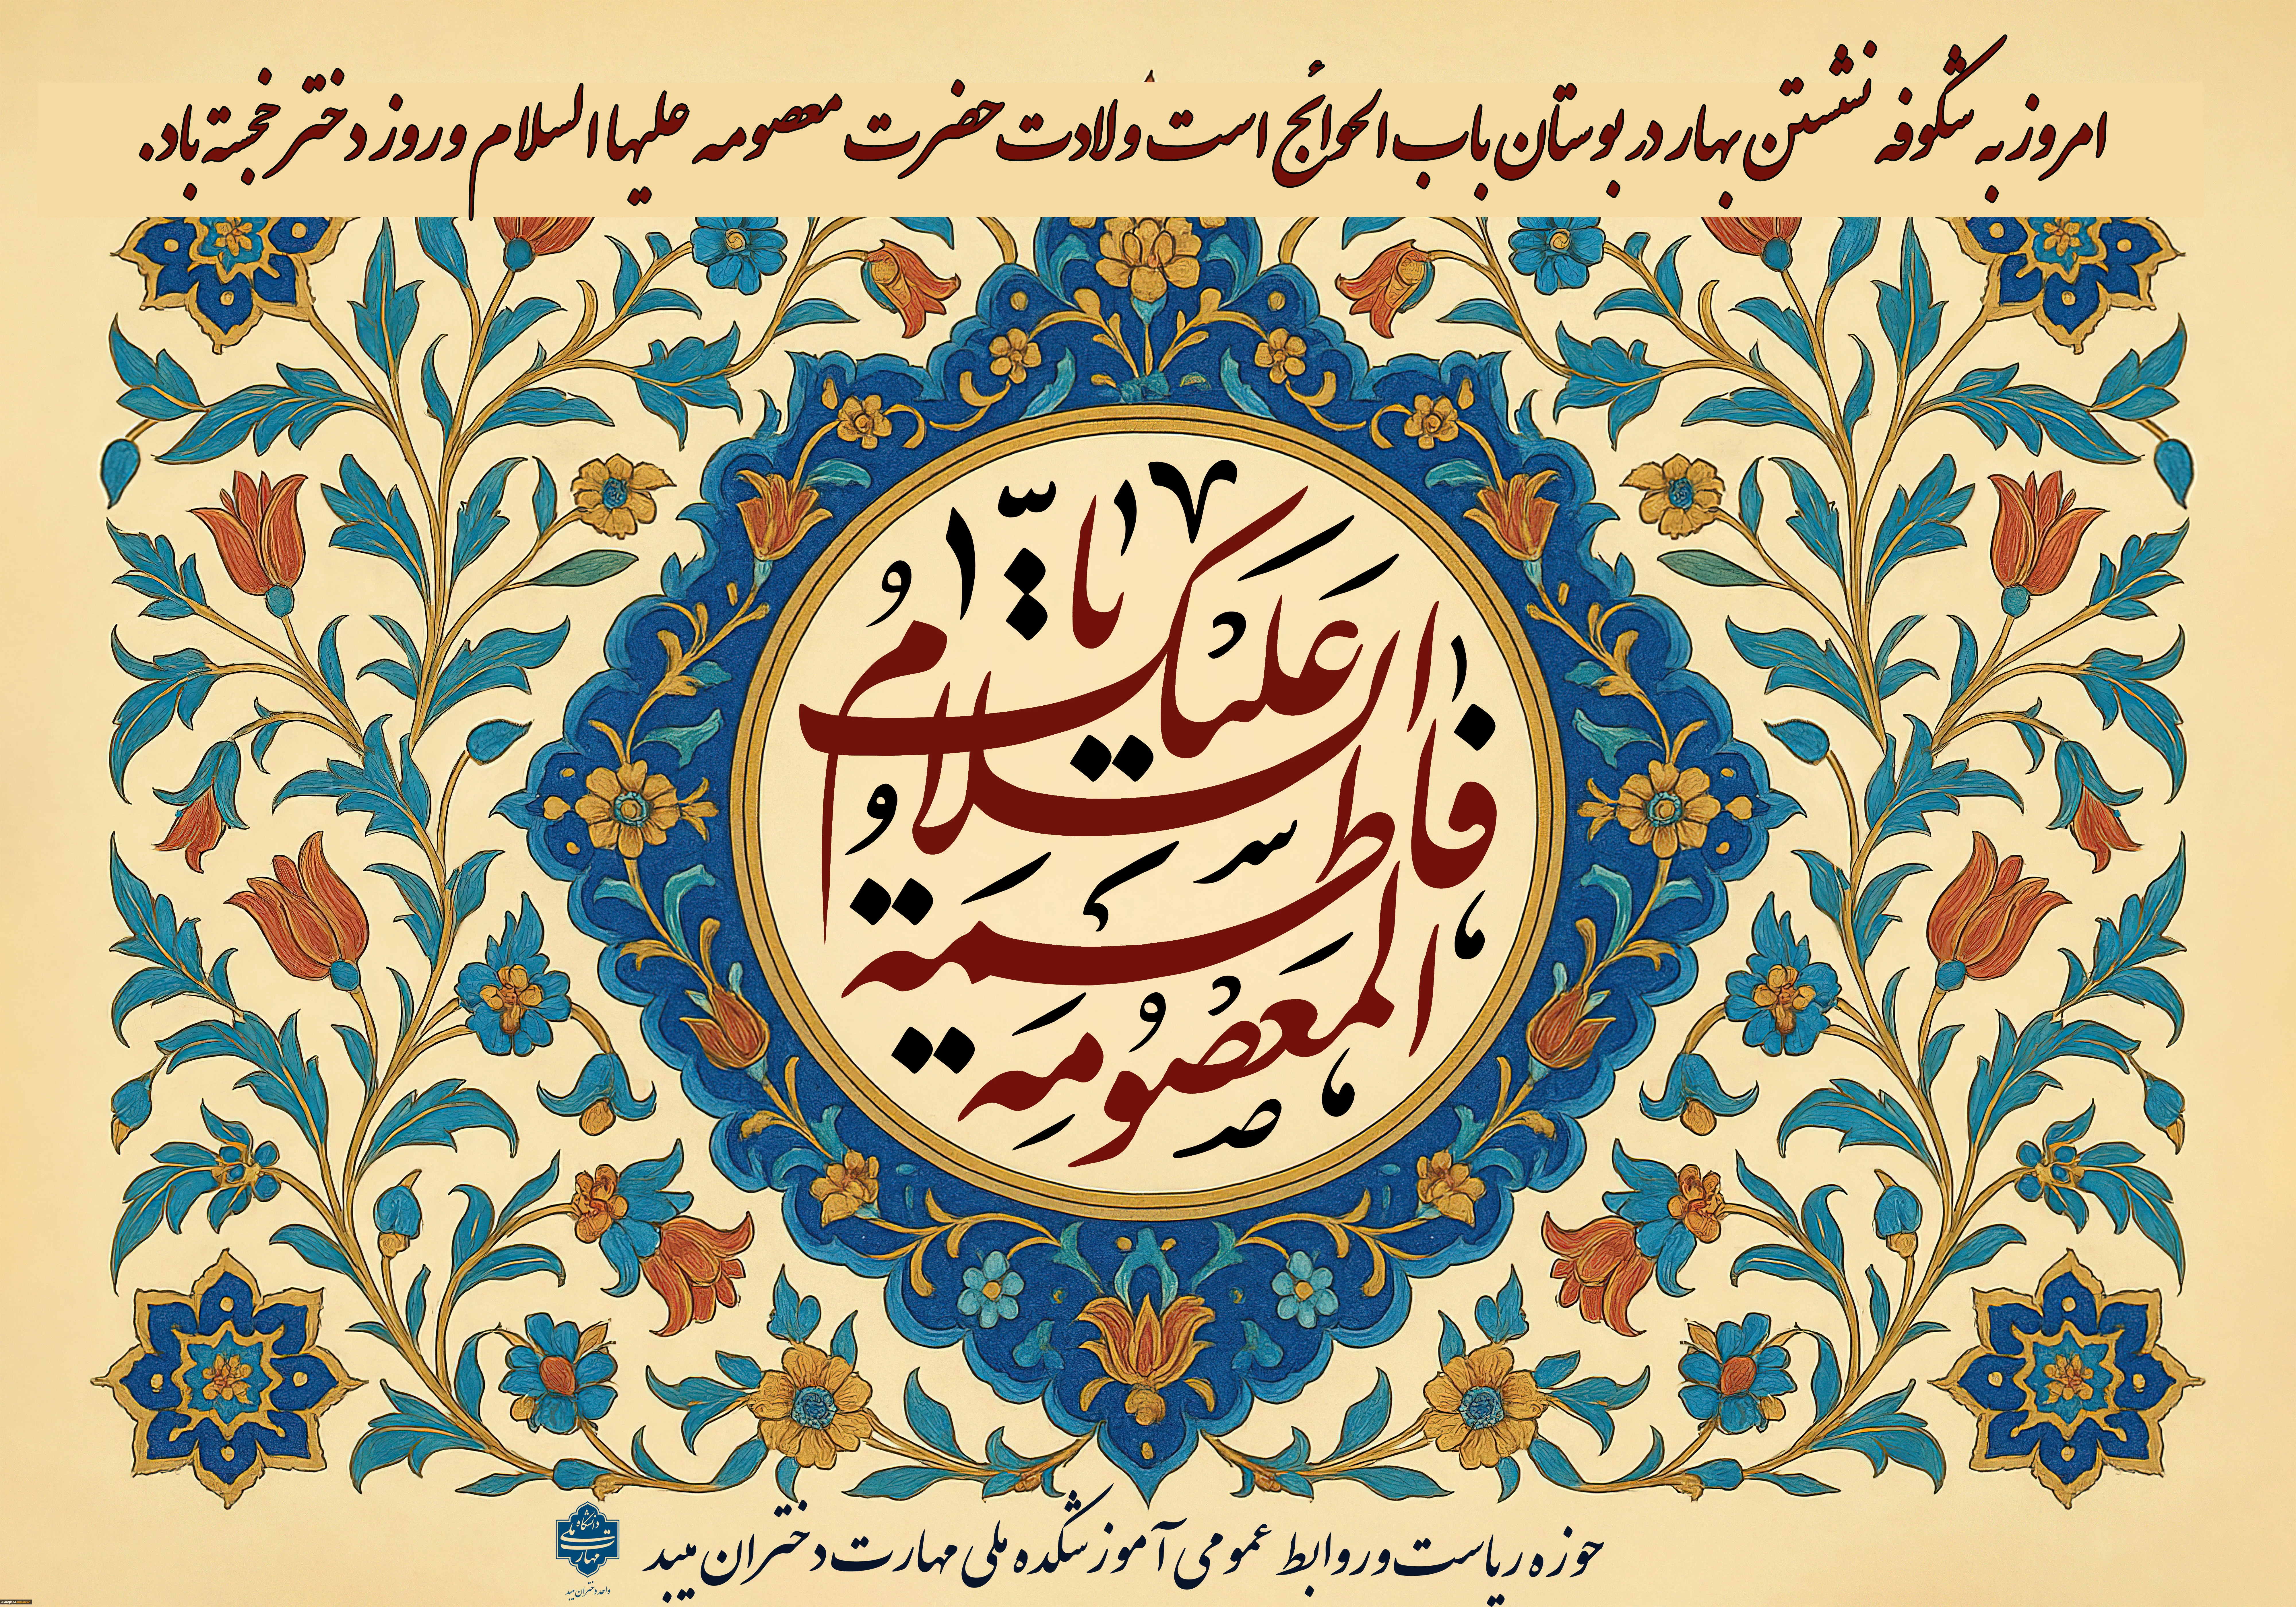 امروز به شکوفه نشستن بهار در بوستان باب الحوائج است ولادت حضرت معصومه علیها السلام و روز دختر خجسته باد.
السَّلامُ عَلَیْکِ یا
فاطِمَةُ
المَعْصُومَه
حوزه ریاست و روابط عمومی آموزشکده ملی مهارت دختران میبد
دانشگاه ملی مهارت
واحد دختران میبد